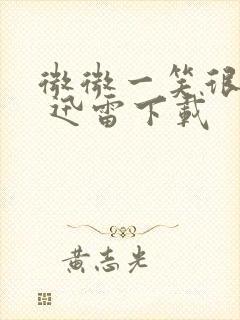 微微一笑很
迅雷下載
黄志光